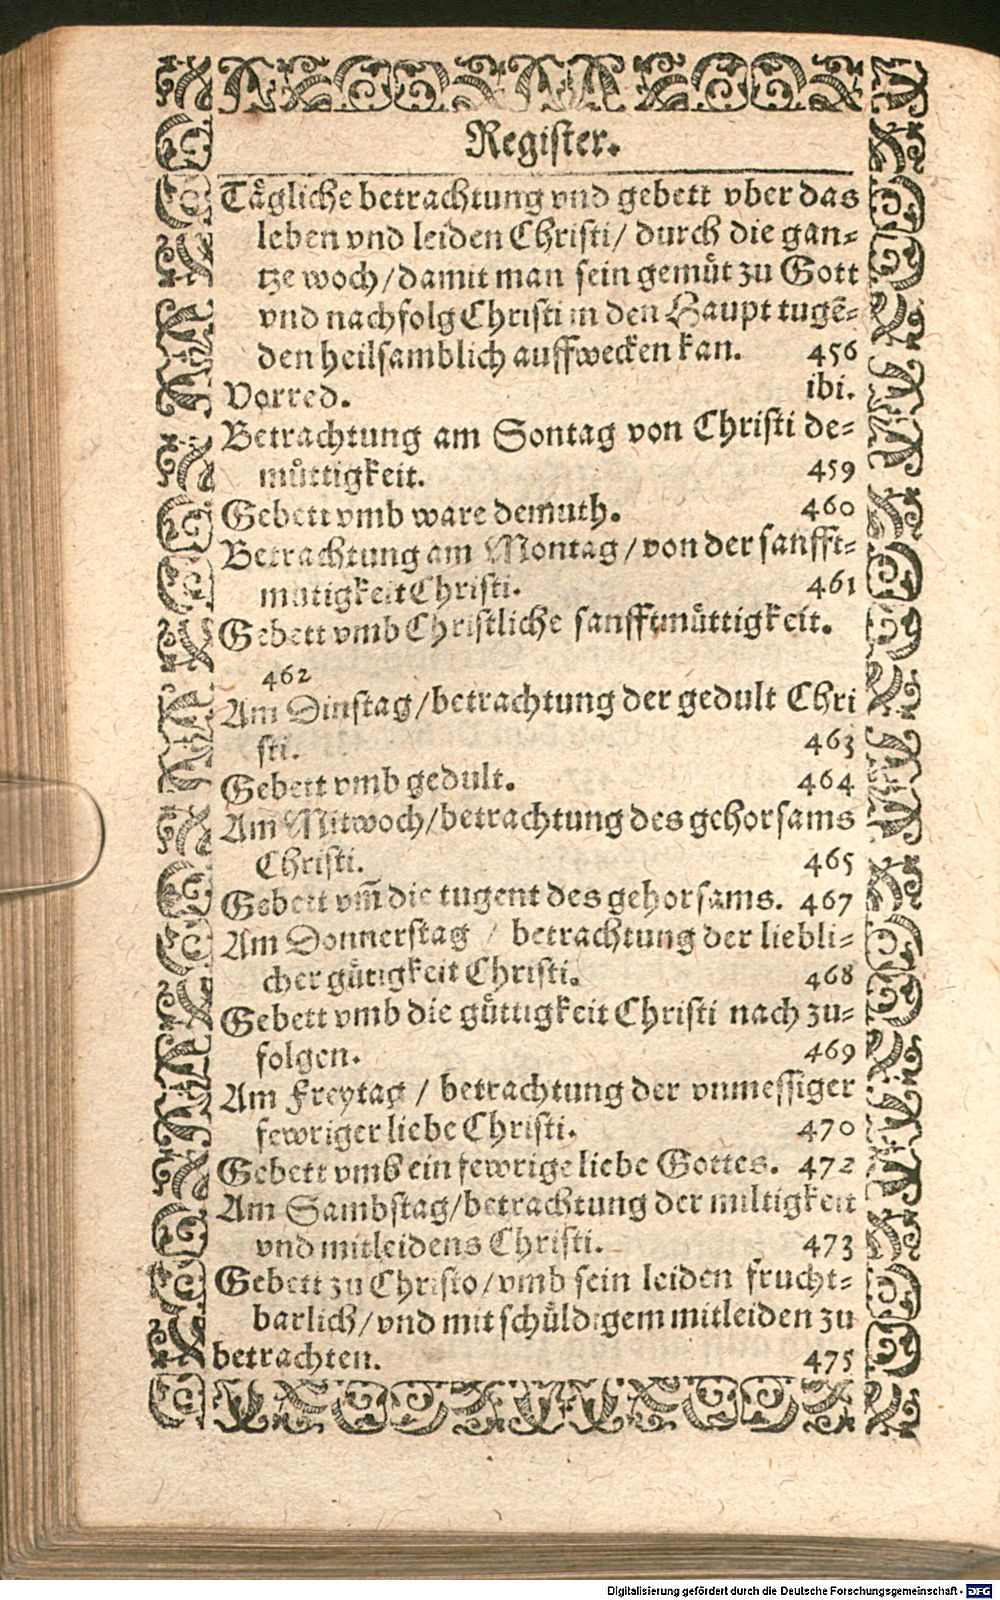 Register.
Tägliche betrachtung vnd gebett vber das
leben vnd leiden Christi/ durch die gan⸗
tze woch/damit man sein gemüt zu Gott
vnd nachfolg Christi in den Haupt tugē⸗
den heilsamblich auffwecken kan. 456
Vorred. ibi.
Betrachtung am Sontag von Christi de⸗
müttigkeit. 459
Gebett vmb ware demuth. 460
Betrachtung am Montag/von der sanfft⸗
mutigkeit Christi. 461
Gebett vmb Christliche sanfftmüttigkeit.
462
Am Dinstag/betrachtung der gedult Chri
sti. 463
Gebett vmb gedult. 464
Am Mitwoch/betrachtung des gehorsams
Christi. 465
Gebett vm̄ die tugent des gehorsams. 467
Am Donnerstag / betrachtung der liebli⸗
cher gütigkeit Christi. 468
Gebett vmb die güttigkeit Christi nach zu⸗
folgen. 469
Am Freytag / betrachtung der vnmessiger
fewriger liebe Christi. 470
Gebett vmb ein fewrige liebe Gottes. 472
Am Sambstag/betrachtung der miltigkeit
vnd mitleidens Christi. 473
Gebett zu Christo/vmb sein leiden frucht⸗
barlich/vnd mit schüldigem mitleiden zu
betrachten. 475
Digitalisierung gefördert durch die Deutsche Forschungsgemeinschaft - DFG